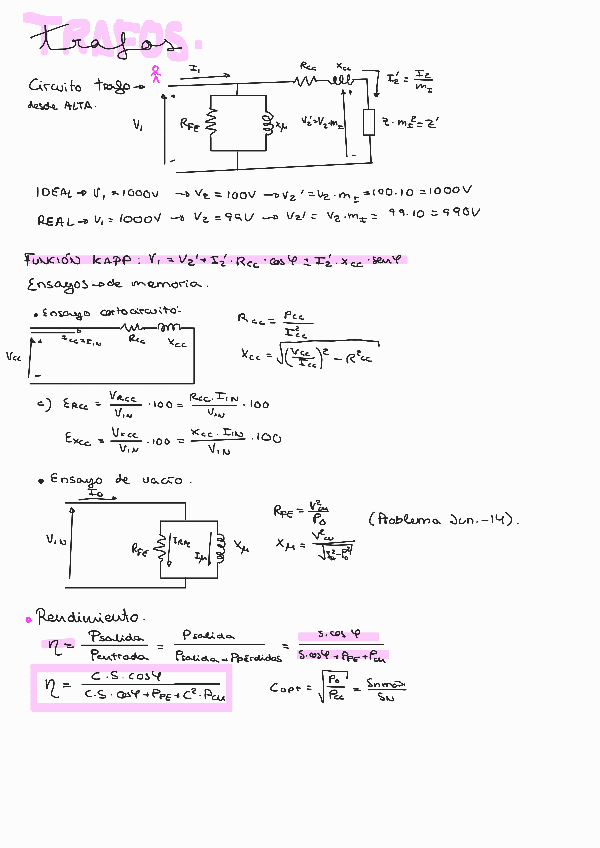 TRAFOS.
Trafos
Circuito trafo →
desde ALTA.
I₁
V₁
R_FE
X_μ
R_CC
X_CC
V₂' = V₂·m_I
I₂' = I₂/m_I
Z·m_I² = Z'
IDEAL → V₁ = 1000V → V₂ = 100V → V₂' = V₂·m_I = 100·10 = 1000V
REAL → V₁ = 1000V → V₂ = 99V → V₂' = V₂·m_I = 99·10 = 990V
FUNCIÓN KAPP: V₁ = V₂' + I₂'·R_CC·cosφ ± I₂'·X_CC·senφ
Ensayos → de memoria.
• Ensayo cortocircuito:
V_CC
I_CC = I_1N
R_CC
X_CC
R_CC = P_CC / I²_CC
X_CC = √((V_CC/I_CC)² − R²_CC)
c) E_RCC = V_RCC/V_1N · 100 = R_CC·I_1N/V_1N · 100
E_XCC = V_XCC/V_1N · 100 = X_CC·I_1N/V_1N · 100
• Ensayo de vacío.
I₀
V_1N
R_FE
I_μ
X_μ
(Problema Jun.-14).
• Rendimiento.
η = Psalida/Pentrada = Psalida/(Psalida + Pperdidas) = S·cosφ/(S·cosφ + P_FE + P_CU)
η = C·S·cosφ/(C·S·cosφ + P_FE + C²·P_CU)
C_opt = √(P₀/P_CC) = Snmax/S_N